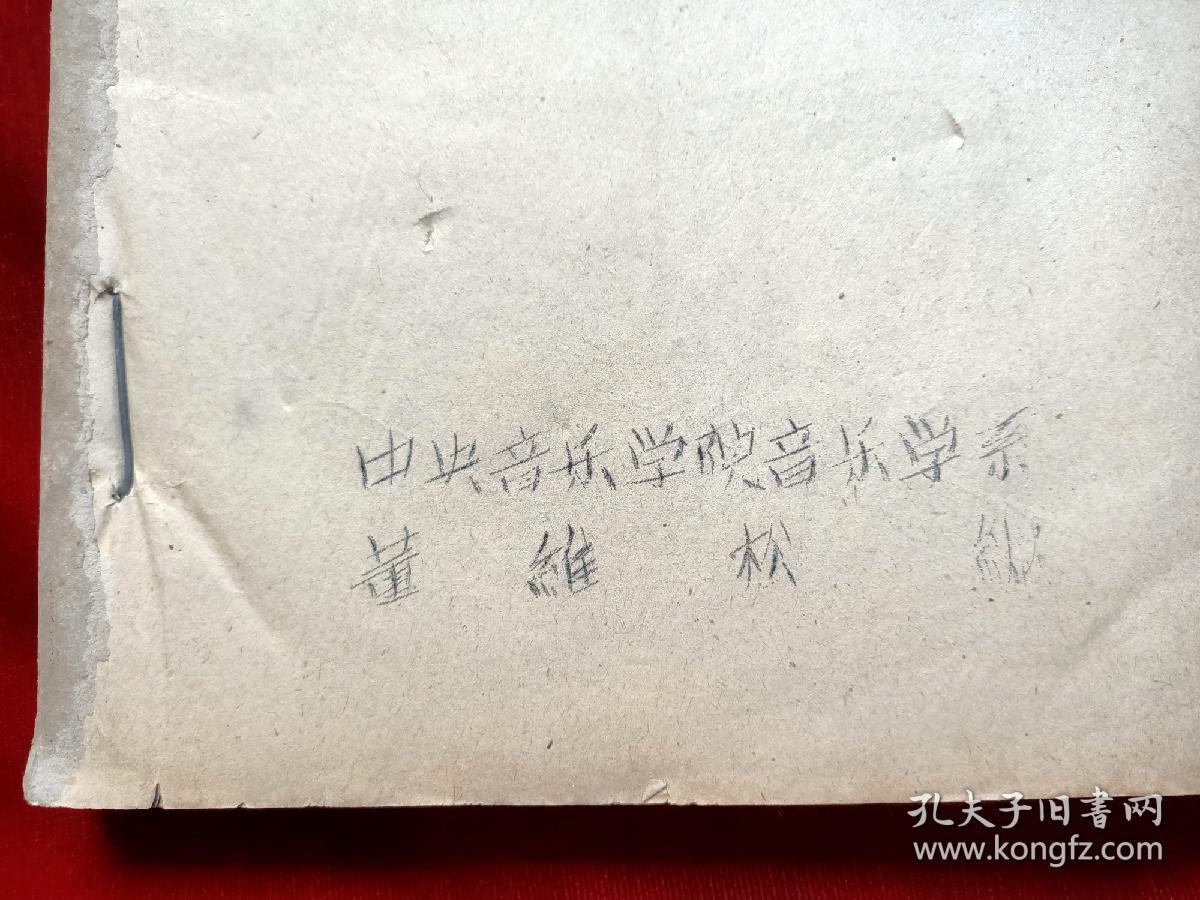 中央音乐学院音乐学系
董維松
孔夫子旧書网
www.kongfz.com